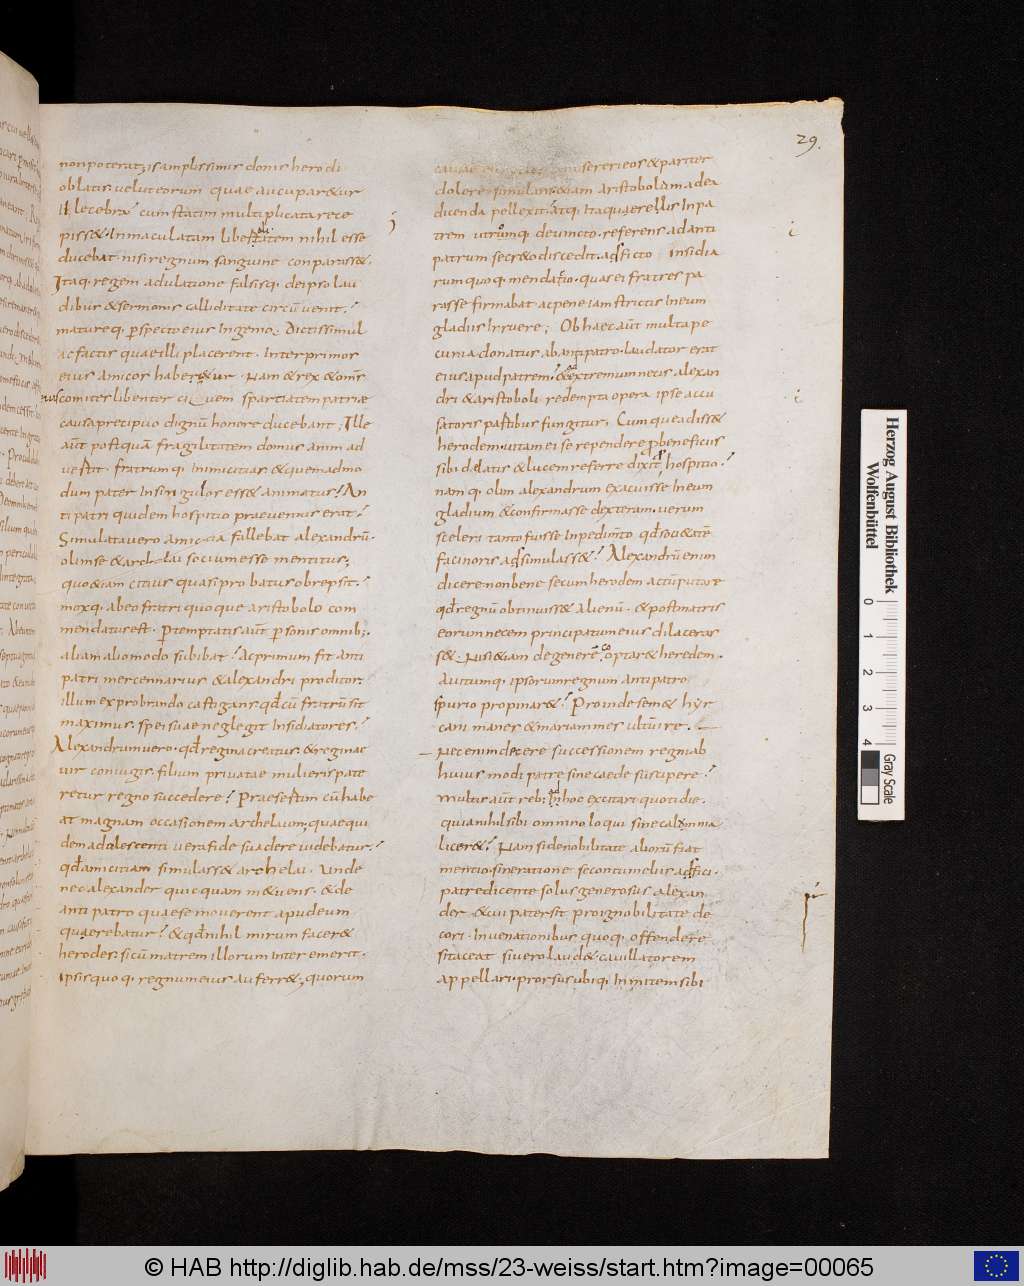 29.
non poterat; is amplissimis donis herodi
oblatis. veluteorum quae aucuparetur
Illecebra cum statim multiplicata rece
pisset. Inmaculatam libertatem nihil esse
ducebat nisi regnum sanguine conparasset.
Itaq. regem adulatione falsisq. de ipso lau
dibus & sermonis calliditate circū venit.
matureq. pspecto eius Ingenio. Dictis simul
ac factis quae illi placerent. Inter primos
eius amicos haberetur. Nam & rex & om̄s
comiter libenter ciuem spartiatem patriae
causa precipuo dignū honore ducebant; Ille
aūt postquā fragilitatem domus anim ad
vertit. fratrumq. Inimicitias & quemadmo
dum pater Insingulos esset animatus! An
tipatri quidem hospitio praeventus erat!
Simulata vero amicitia fallebat alexandrū.
olim se & archelai socium esse mentitus;
quo etiam citius quasi probatus obrepsit!
moxq. ab eo fratri quoque aristobolo com
mendatus est. Ptemptatis aūt psonis omnib;.
aliam alio modo subibat! Ac primum fit anti
patri mercennarius & alexandri proditor;
illum exprobrando castigans qđ cū fratrū sit
maximus. spei suae neglegit Insidiatores!
Alexandrum vero. qđ regina creatus. & reginae
vir coniugis. filium privatae mulieris pate
retur regno succedere? Praesertim cū habe
at magnam occasionem archelaum; quae qui
dem adolescenti vera fide suadere videbatur!
qđ amicitiam simulasset archelai. Unde
nec alexander quicquam metuens. & de
antipatro quae se moverent apud eum
quaerebatur! & qđ nihil mirum faceret
herodes. sicū matrem illorum Interemerit.
ipsis quoq. regnum eius auferret; quorum
dolere simulans. etiam aristobolum ad ea
dicenda pellexit. Atq. Ita quaerellis Inpa
trem utrumq. devincto. referens ad anti
patrum secreto discedit. adficto Insidia
rum quoq. mendacio. quasi ei fratres pa
rasse firmabat ac pene iam strictis In eum
gladiis Irruere; Ob haec aūt multa pe
cunia donatus ab antipatro. laudator erat
eius apud patrem! & ad extremum necis alexan
dri & aristoboli redempta opera ipse accu
satoris partibus fungitur; Cumque adisset
herodem. vitam ei se rependere pro beneficiis
sibi delatis & lucem referre dixit p hospitio!
namq. olim alexandrum exacuisse In eum
gladium & confirmasse dexteram. verum
sceleri tanto fuisse Inpedimto qđ societatē
facinoris adsimulasset! Alexandrū enim
dicere non bene secum herodem actū putare
qđ regnū obtinuisset alienū. & post matris
eorum necem principatum eius dilaceras
set. Nisi etiam degenerē optaret heredem.
Avitumq. ipsorum regnum antipatro
spurio propinaret! Proinde semet hyr
cani manes & mariammes ultum ire.
nec enim decere successionem regni ab
huius modi patre sine caede suscipere!
Multis aūt reb; In hoc excitari quotidie.
quia nihil sibi omnino loqui sine calumnia
liceret! Nam si de nobilitate aliorū fiat
mentio. sine ratione se contumeliis adfici.
patre dicente solus generosus alexan
der. & cui pater sit pro ignobilitate de
cori. In venationibus quoq. offendere
si taceat si vero laudet. cavillatorem
appellari. prorsus ubiq. Inmitem sibi
Herzog August Bibliothek
Wolfenbüttel
0 1 2 3 4
Gray Scale
© HAB http://diglib.hab.de/mss/23-weiss/start.htm?image=00065